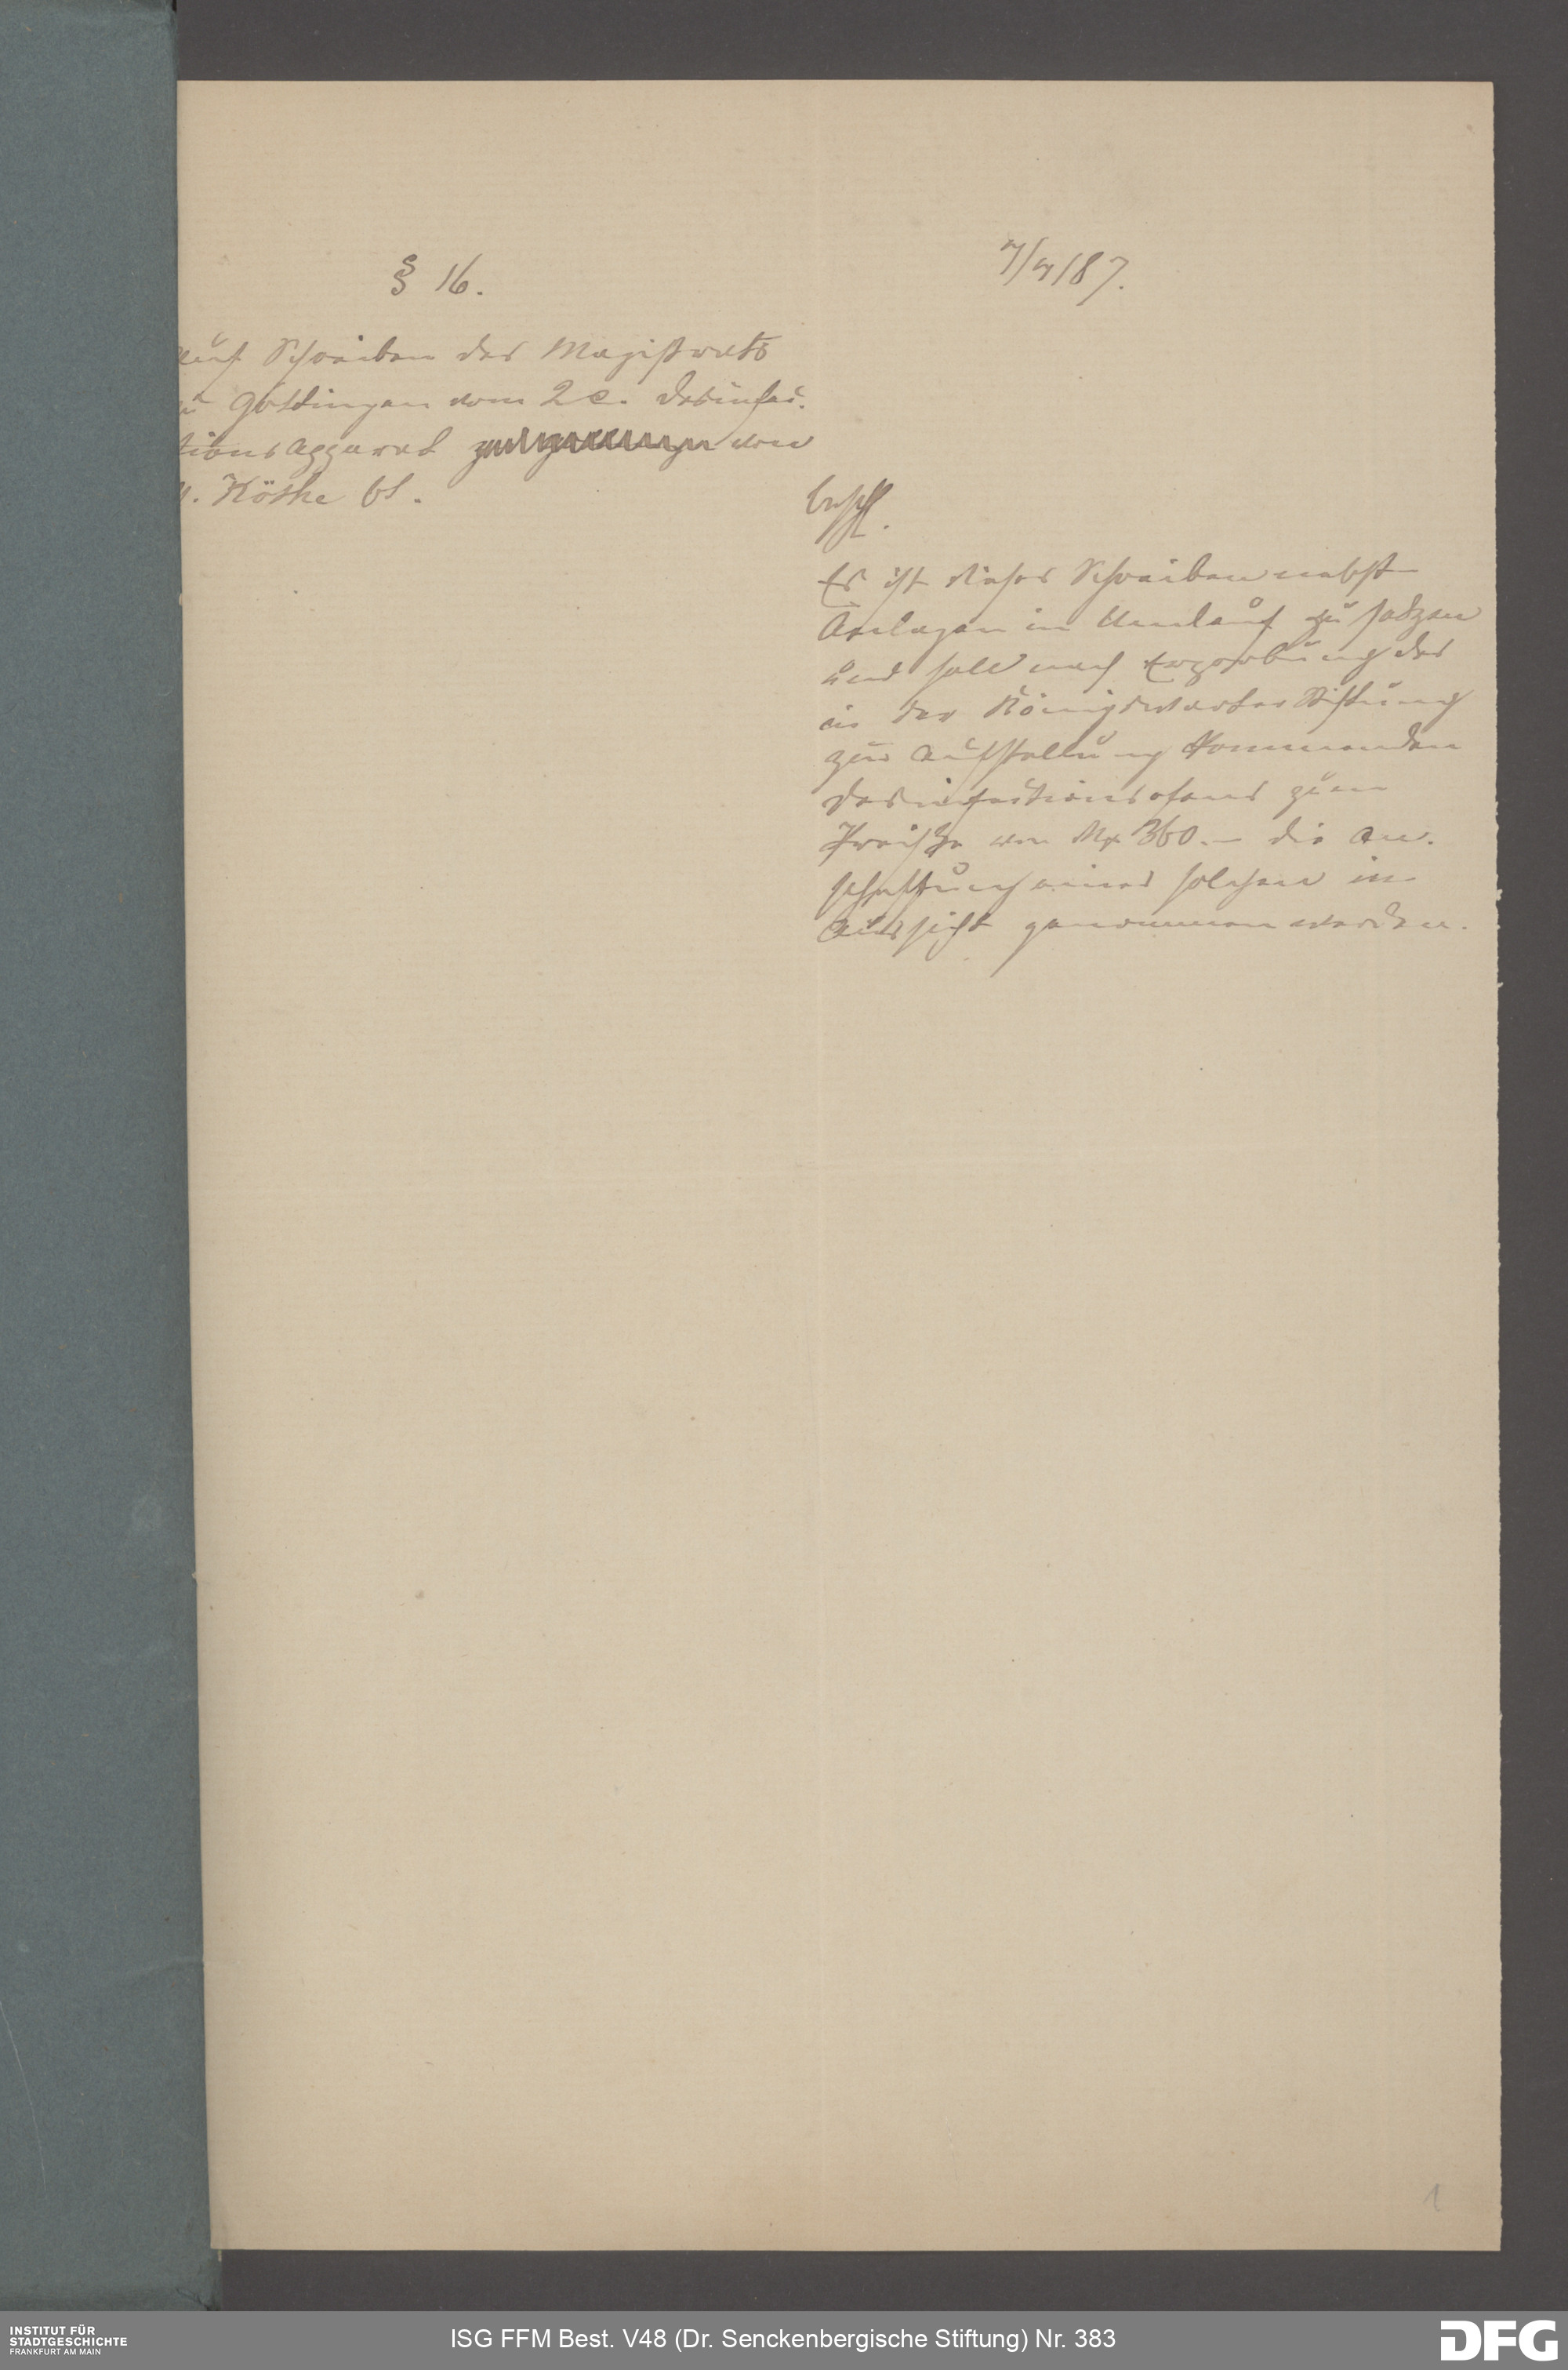 § 16.
7/4/87.
auf Schreiben des Magistrats
zu Göttingen vom 2 c. Desinfec.
tionsapparat von
Köthe bt.
beschl.
Es ist dieses Schreiben nebst
Anlagen in Umlauf zu setzen
und soll nach Erprobung des
in der Königswarter Stiftung
zur Aufstellung kommenden
Desinfectionsofens zum
Preise von Mk 360.- die An-
schaffung eines solchen in
Aussicht genommen werden.
1
INSTITUT FÜR
STADTGESCHICHTE
FRANKFURT AM MAIN
ISG FFM Best. V48 (Dr. Senckenbergische Stiftung) Nr. 383
DFG